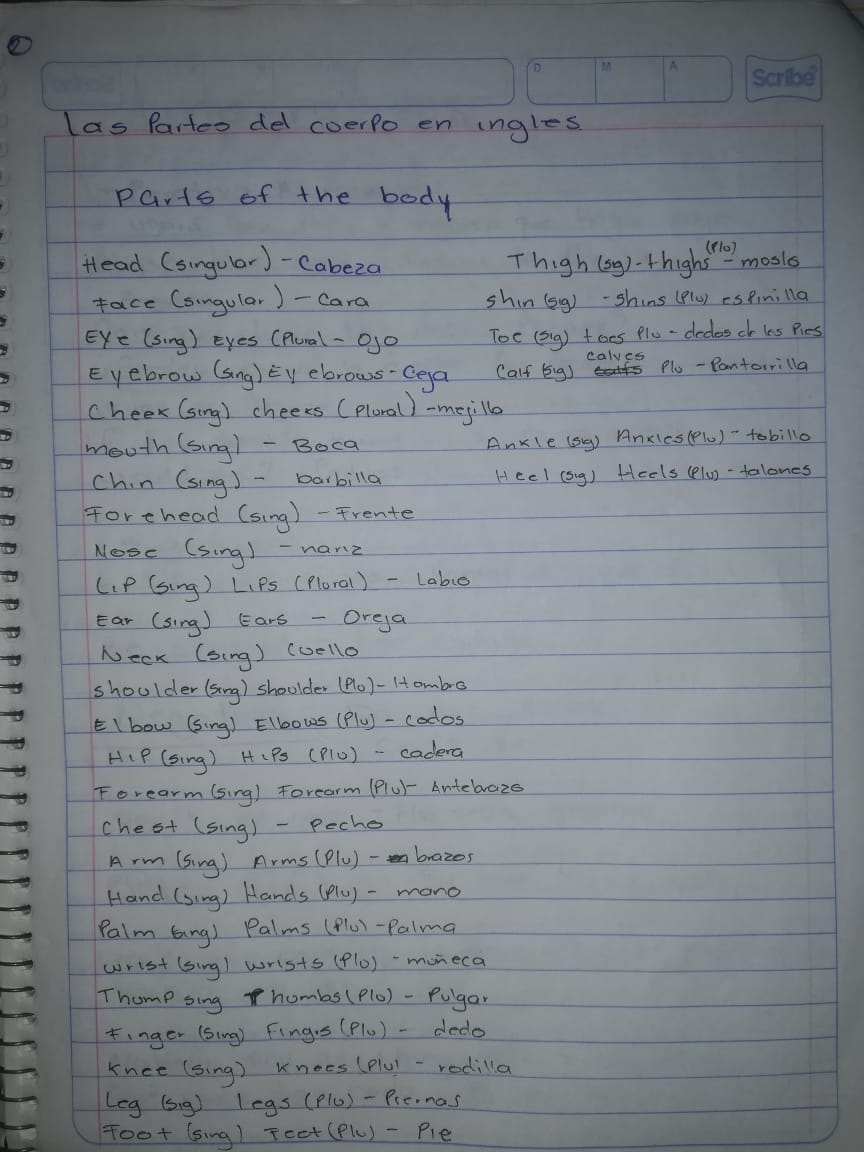 2
D M A Scribe
Las Partes del cuerpo en ingles
Parts of the body
Head (singular) - Cabeza
Face (singular) - Cara
Eye (sing) Eyes (Plural - Ojo
Eyebrow (sing) Ey ebrows - Ceja
Cheek (sing) cheeks (Plural) - mejilla
mouth (sing) - Boca
Chin (sing) - barbilla
Forehead (sing) - Frente
Nose (sing) - nariz
Lip (sing) Lips (Plural) - Labio
Ear (sing) Ears - Oreja
Neck (sing) Cuello
shoulder (sing) shoulder (Plu) - Hombro
Elbow (sing) Elbows (Plu) - codos
Hip (sing) Hips (Plu) - cadera
Forearm (sing) Forearm (Plu) - Antebrazo
Chest (sing) - Pecho
Arm (sing) Arms (Plu) - brazos
Hand (sing) Hands (Plu) - mano
Palm sing) Palms (Plu) - Palma
wrist (sing) wrists (Plu) - muñeca
Thump sing Thumbs (Plu) - Pulgar
Finger (sing) Fingrs (Plu) - dedo
Knee (sing) Knees (Plu) - rodilla
Leg (sig) Legs (Plu) - Piernas
Foot (sing) Feet (Plu) - Pie
Thigh (sig) - thighs (Plu) - moslo
shin (sig) - shins (Plu) espinilla
Toe (sig) toes Plu - dedos de los Pies
Calf (sig) calves Plu - Pantorrilla
Ankle (sig) Ankles (Plu) - tobillo
Heel (sig) Heels (Plu) - talones